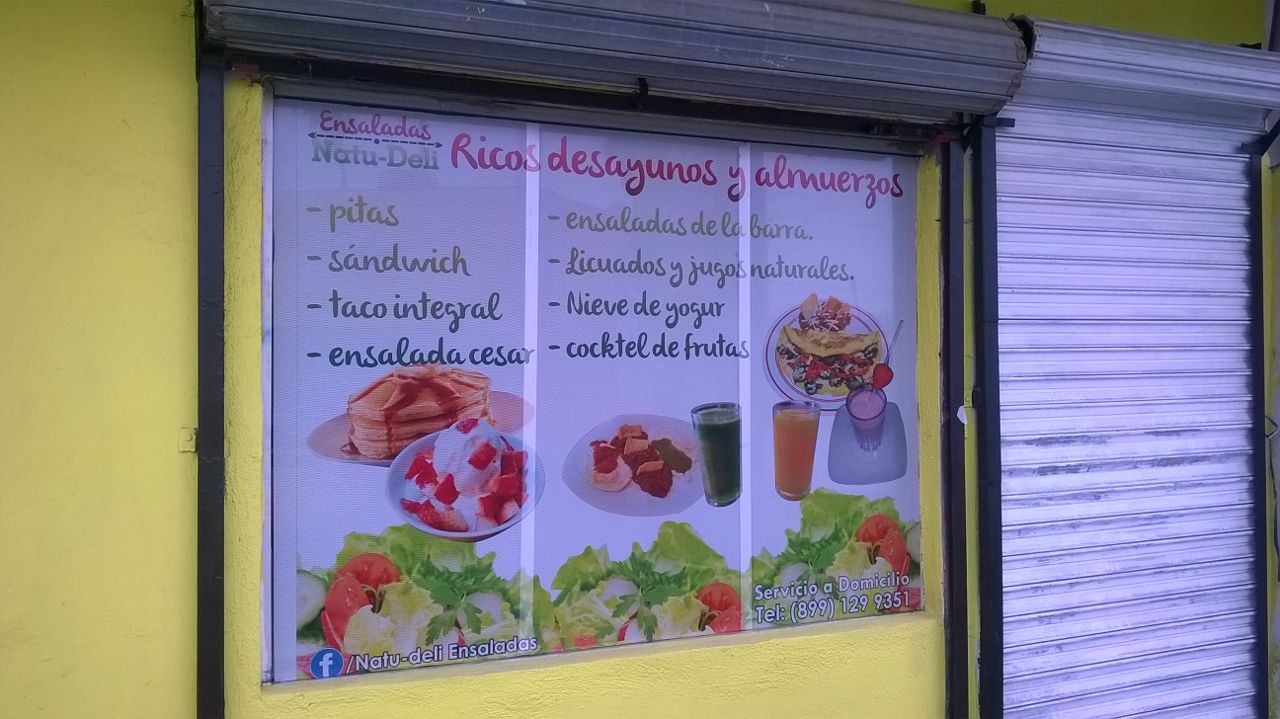 Ensaladas
Natu-Deli
Ricos desayunos y almuerzos
- pitas
- sándwich
- taco integral
- ensalada cesar
- ensaladas de la barra.
- Licuados y jugos naturales.
- Nieve de yogur
- cocktel de frutas
Servicio a Domicilio
Tel: (899) 129 9351
f /Natu-deli Ensaladas